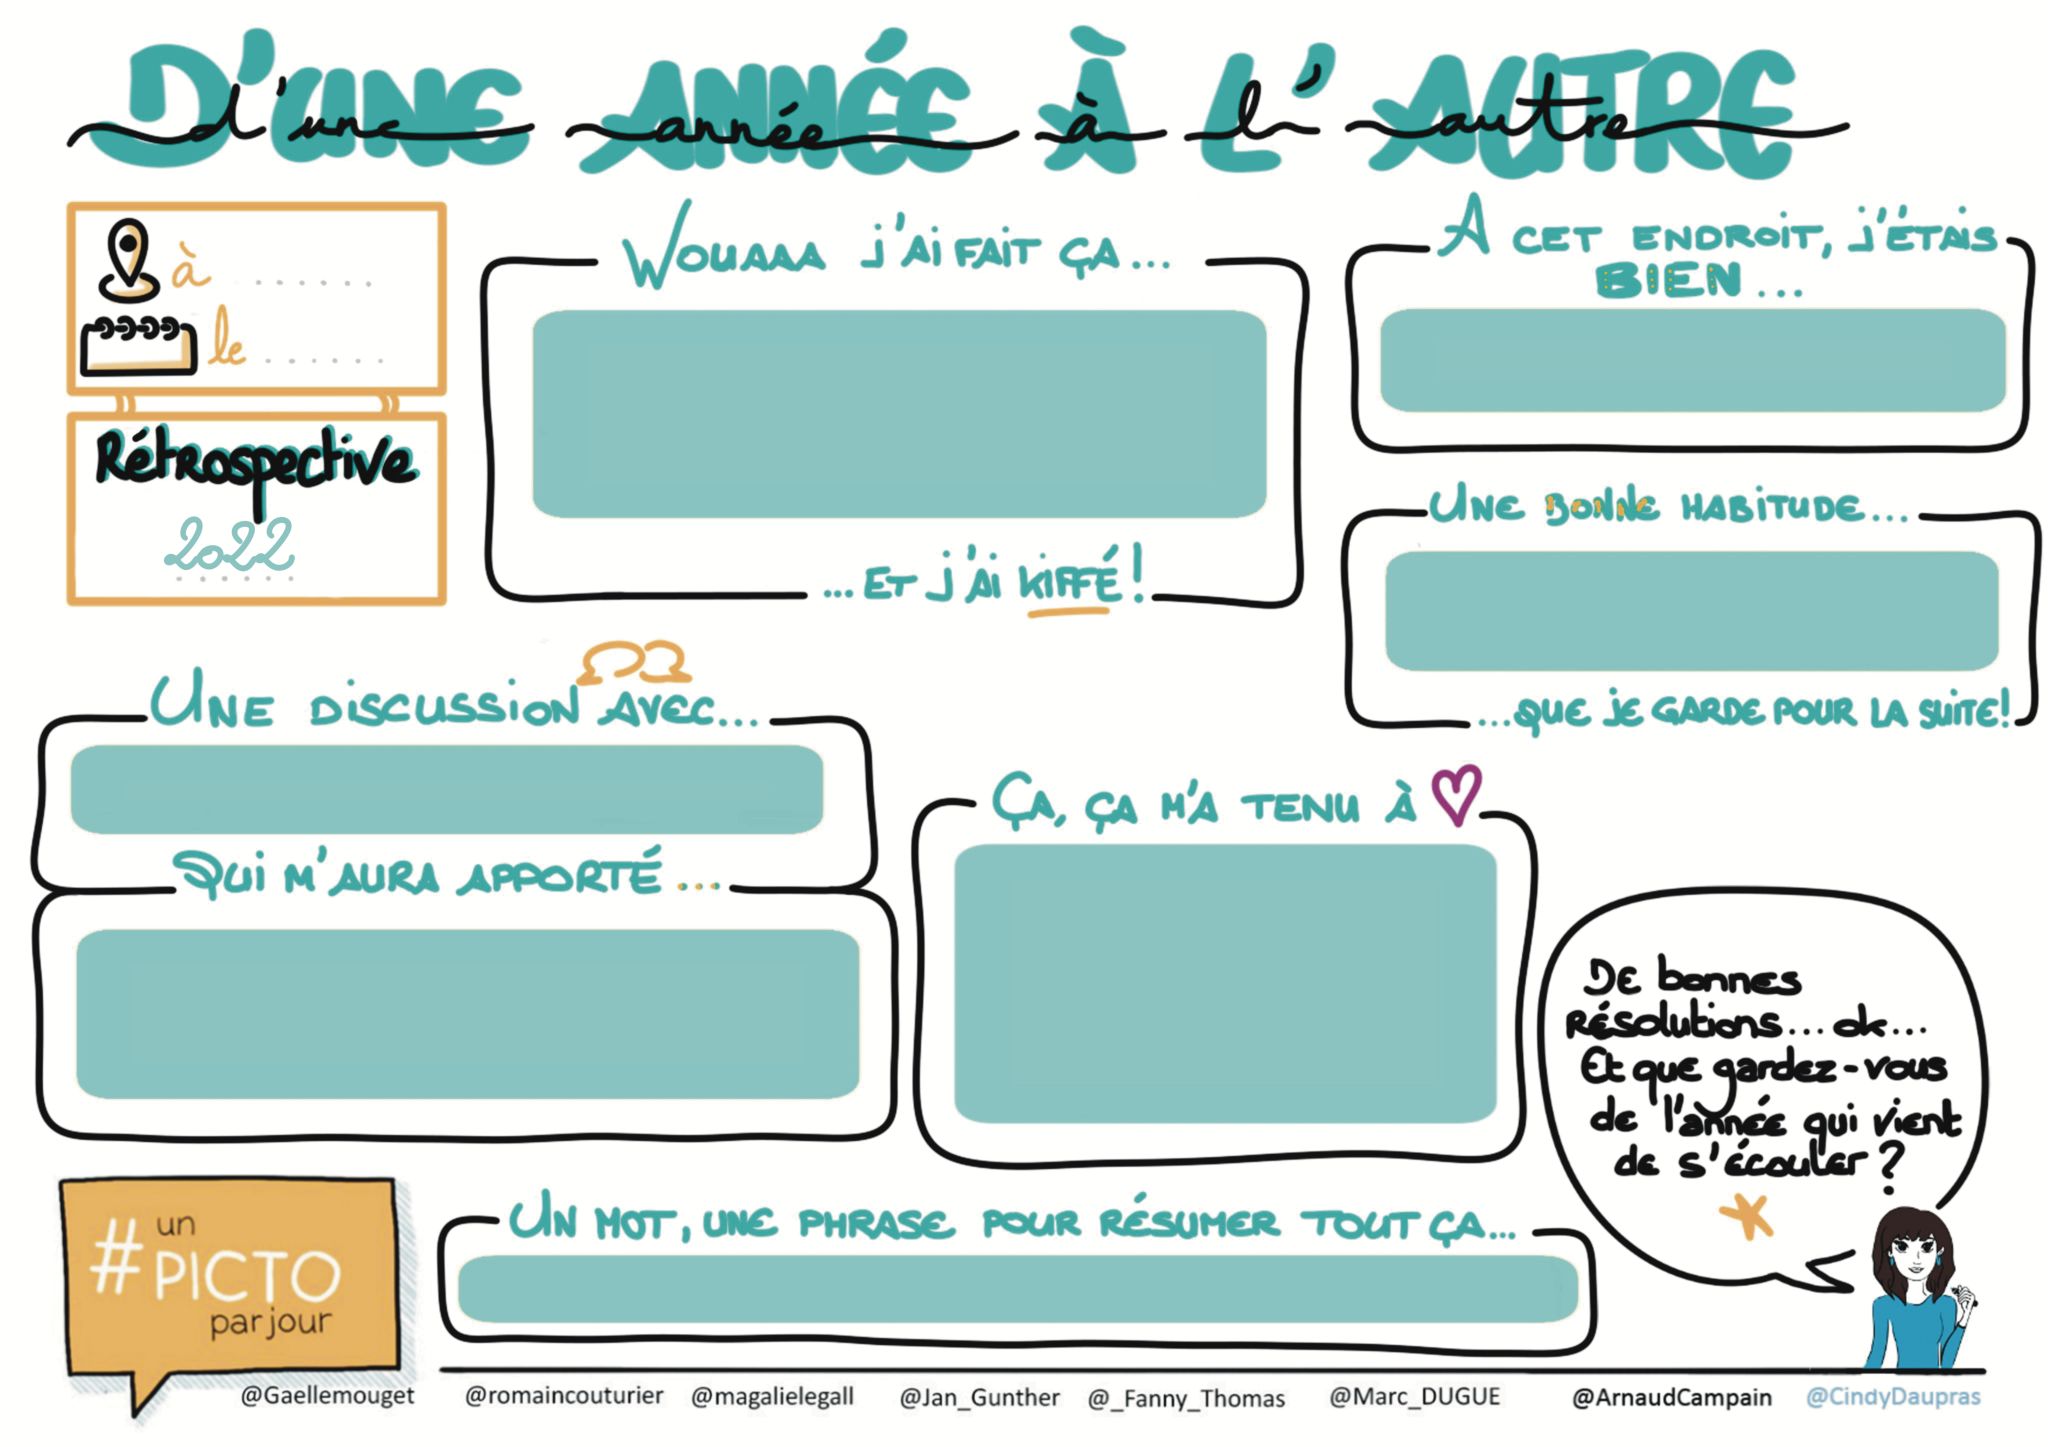 D'UNE ANNÉE À L'AUTRE
d'une année à l'autre
à ......
le ......
Rétrospective
2022
WOUAAA J'AI FAIT ÇA...
...ET J'AI KIFFÉ!
A CET ENDROIT, J'ÉTAIS
BIEN...
UNE BONNE HABITUDE...
...QUE JE GARDE POUR LA SUITE!
UNE DISCUSSION AVEC...
QUI M'AURA APPORTÉ...
ÇA, ÇA M'A TENU À
De bonnes
résolutions... ok...
Et que gardez-vous
de l'année qui vient
de s'écouler ?
UN MOT, UNE PHRASE POUR RÉSUMER TOUT ÇA...
# un
PICTO
par jour
@Gaellemouget @romaincouturier @magalielegall @Jan_Gunther @_Fanny_Thomas @Marc_DUGUE @ArnaudCampain @CindyDaupras